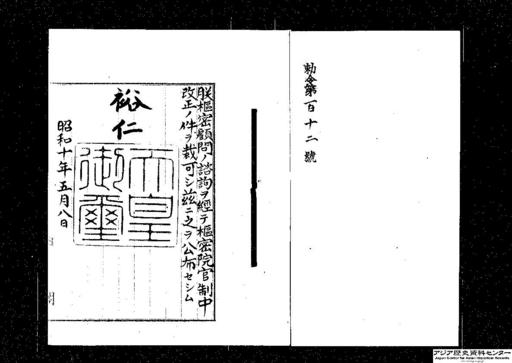 勅令第百十二號
朕樞密顧問ノ諮詢ヲ經テ樞密院官制中
改正ノ件ヲ裁可シ茲ニ之ヲ公布セシム
裕仁
天皇
御璽
昭和十年五月八日
アジア歴史資料センター
Japan Center for Asian Historical Records